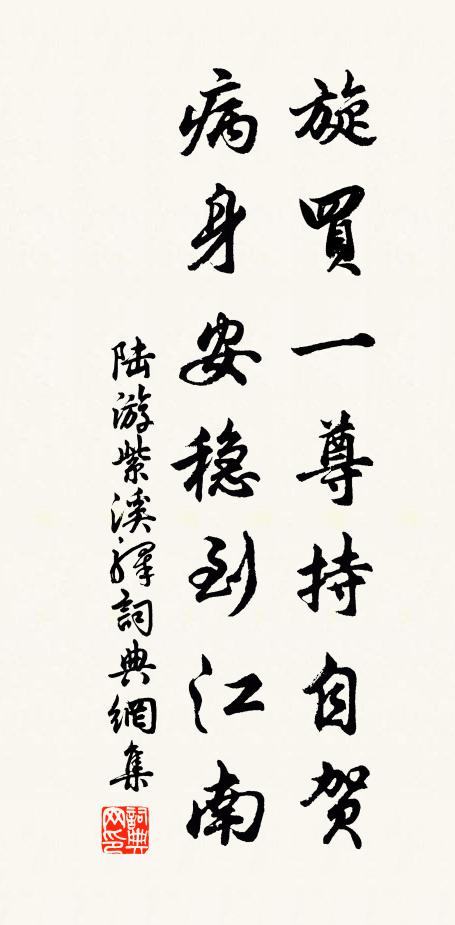 旋買一尊持自賀
病身安稳到江南
陆游紫溪驛詞典網集
詞典网印